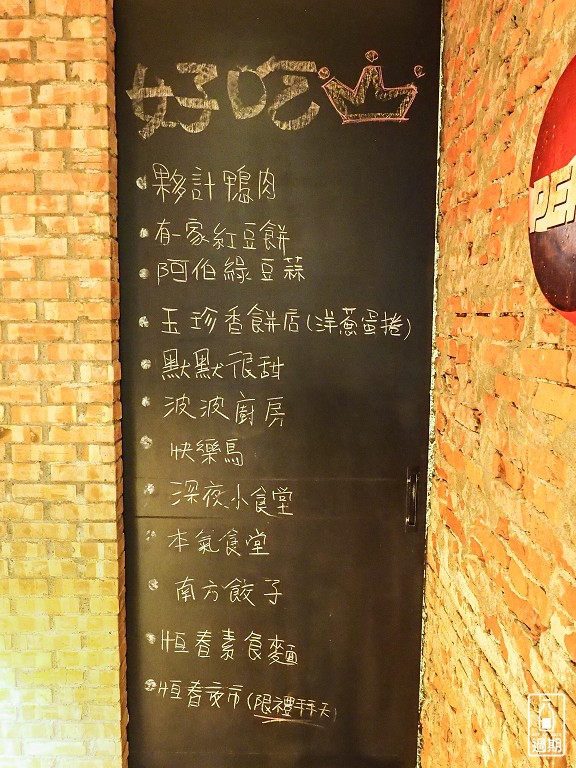 好吃
夥計鴨肉
有一家紅豆餅
阿伯綠豆蒜
玉珍香餅店(洋蔥蛋捲)
默默很甜
波波廚房
快樂鳥
深夜小食堂
本氣食堂
南方餃子
恒春素食麵
恒春夜市(限禮拜天)
PE
週期